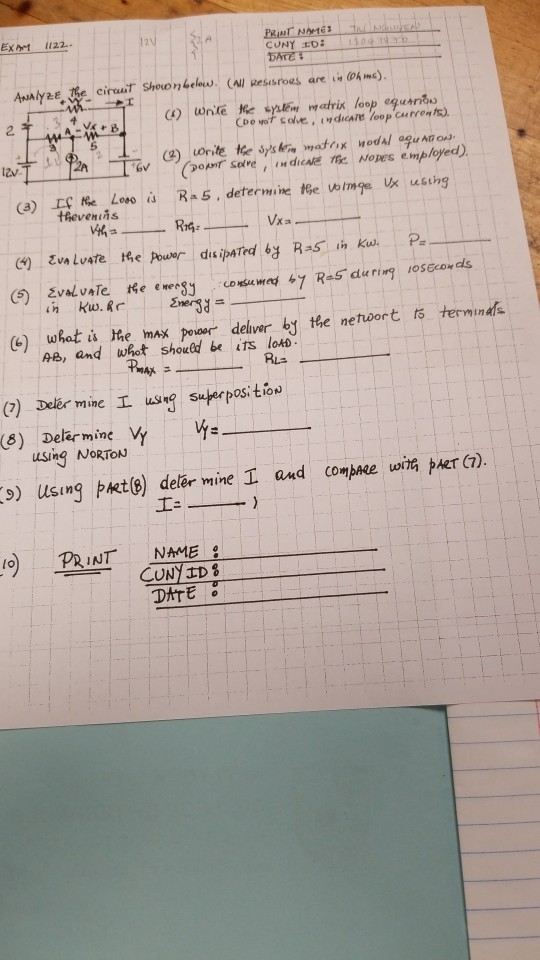 PRINT NAME:
EXAM 1122.
12V
2A
CUNY ID:
DATE:
ANAlYZE the circuit shown below. (All Resisroes are in Ohms).
+ Vy -
I
4
2
A - Vx + B
3
5
12V
2A
6V
(1) write the system matrix loop equation
(Do not solve, indicate loop currents).
(2) write the system matrix nodal equation.
(DONOT solve, indicate the NODES employed).
(3) If the Load is R=5, determine the voltage Vx using
thevenins
Vth = Rth= Vx=
(4) EVALUATE the power disipated by R=5 in KW. P=
(5) EVALUATE the energy consumed by R=5 during 10SECONDS
in KW.hr Energy =
(6) what is the MAX power deliver by the networt to terminals
AB, and what should be its LOAD.
PMAX = RL=
(7) Determine I using superposition
(8) Determine Vy Vy=
using NORTON
(9) Using pART(8) determine I and compare with pART (7).
I= ;
10) PRINT NAME:
CUNY ID:
DATE: